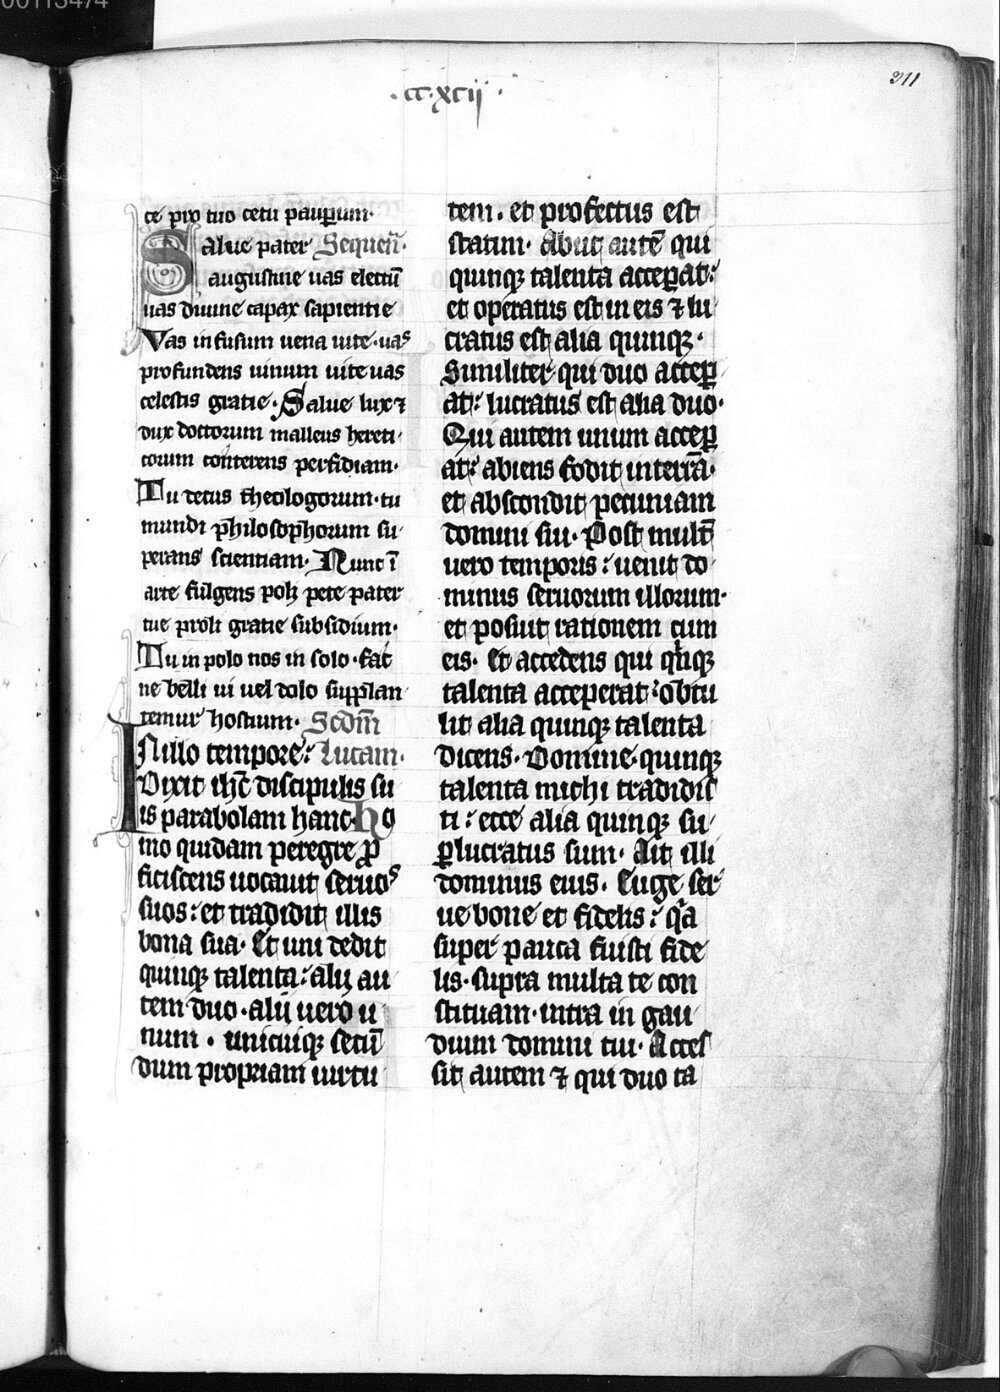 00113474
·cc·xcij·
311
ce pro tuo cetu pauꝑum·
Salue pater Sequen̄·
augustine uas electū
uas diuine capax sapientie
Vas infusum uena uite·uas
profundens uinum uite uas
celestis gratie· Salue lux ⁊
dux doctorum malleus hereti
corum conterens perfidiam·
Tu decus theologorum·tu
mundi philosophorum su
perans scientiam· Nunc ī
arce fulgens poli pete pater
tue proli gratie subsidium·
Tu in polo nos in solo·fac
ne belli ui uel dolo supplan
temur hostium· Scdm̄
In illo tempore: Lucam·
Dixit ihc̄ discipulis su
is parabolam hanc· Ho
mo quidam peregre ꝓ
ficiscens uocauit seruos
suos: et tradidit illis
bona sua· Et uni dedit
quinqꝫ talenta: alij au
tem duo·alij uero u
num· unicuiqꝫ secū
dum propriam uirtu
tem· et profectus est
statim· Abijt autē qui
quinqꝫ talenta acceꝑat:
et operatus est in eis ⁊ lu
cratus est alia quinqꝫ·
Similiter qui duo acceꝑ
at: lucratus est alia duo·
Qui autem unum acceꝑ
at: abiens fodit in terrā·
et abscondit pecuniam
domini sui· Post multū
uero temporis: uenit do
minus seruorum illorum·
et posuit rationem cum
eis· Et accedens qui qͥnqꝫ
talenta acceperat: obtu
lit alia quinqꝫ talenta
dicens· Domine·quinqꝫ
talenta michi tradidis
ti: ecce alia quinqꝫ su
ꝑlucratus sum· Ait illi
dominus eius· Euge ser
ue bone et fidelis: qͣa
super pauca fuisti fide
lis·supra multa te con
stituam·intra in gau
dium domini tui· Acces
sit autem ⁊ qui duo ta